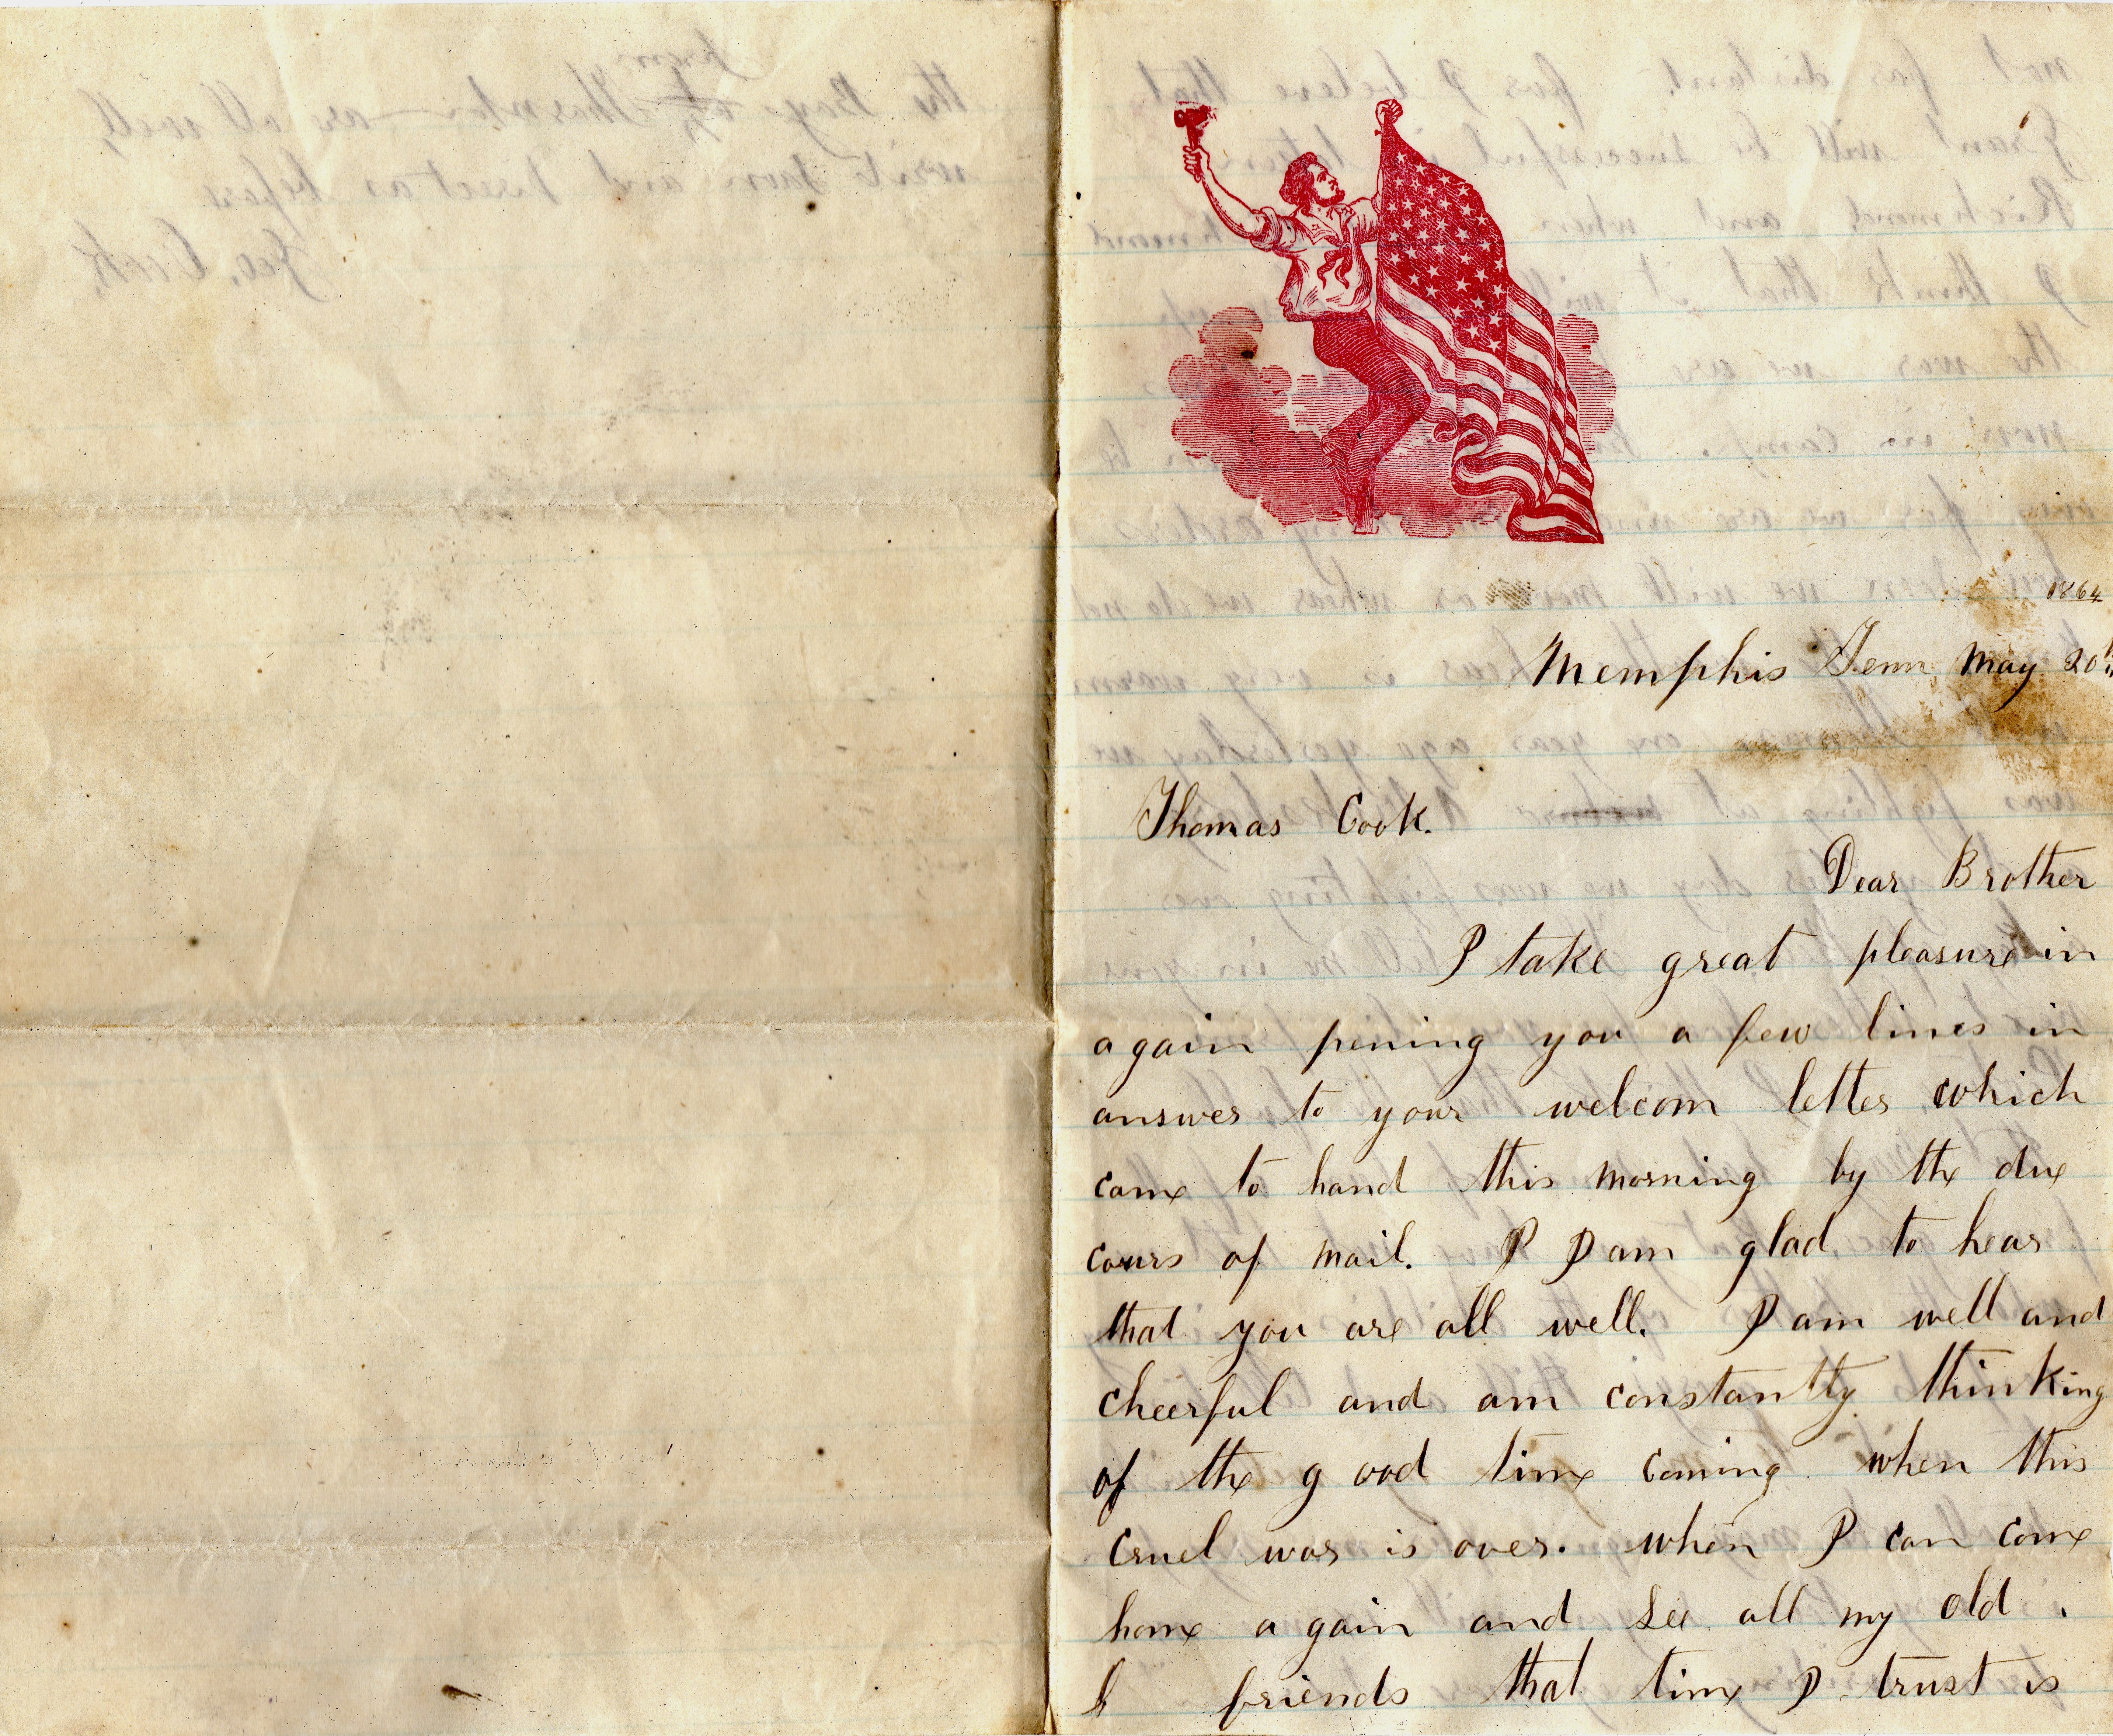 1864
Memphis Tenn May 20th
Thomas Cook.
Dear Brother
I take great pleasure in
again pening you a few lines in
answer to your welcom letter which
came to hand this morning by the due
cours of mail. I I am glad to hear
that you are all well. I am well and
cheerful and am constantly thinking
of the good time coming when this
cruel war is over. when I can come
home again and see all my old
f friends that time I trust is